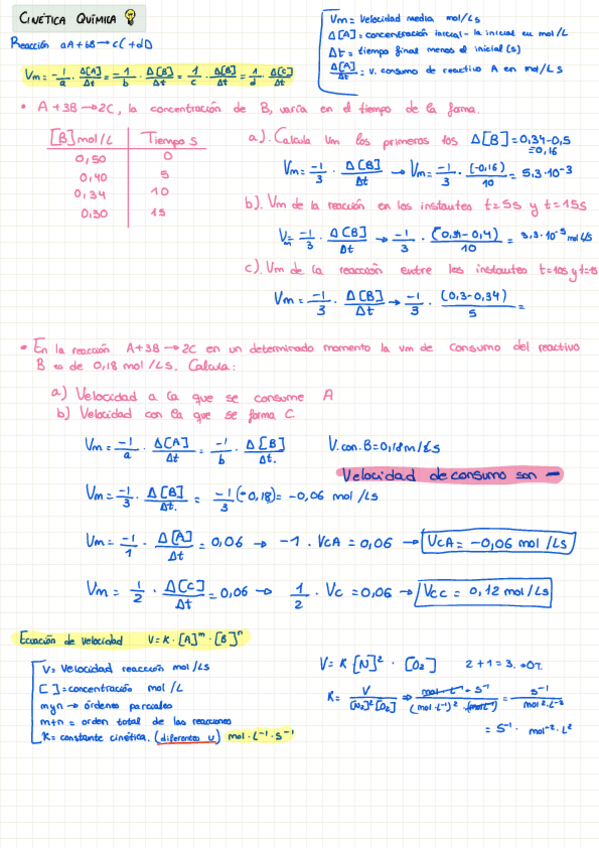 CINÉTICA QUÍMICA
Reacción aA+bB → cC+dD
Vm = -1/a · Δ[A]/Δt = -1/b · Δ[B]/Δt = 1/c · Δ[B]/Δt = 1/d · Δ[C]/Δt
Vm = Velocidad media mol/Ls
Δ[A] = concentración inicial - la inicial en mol/L
Δt = tiempo final menos el inicial (s)
Δ[A]/Δt = v. consumo de reactivo A en mol/Ls
• A+3B → 2C, la concentración de B, varía en el tiempo de la forma.
[B] mol/L Tiempo s
0,50 0
0,40 5
0,34 10
0,30 15
a). Calcula Vm los primeros 10s Δ[B] = 0,34-0,5
= 0,16
Vm = -1/3 · Δ[B]/Δt → Vm = -1/3 · (-0,16)/10 = 5,3·10⁻³
b). Vm de la reacción en los instantes t=5s y t=15s
Vm = -1/3 · Δ[B]/Δt → -1/3 · (0,31-0,4)/10 = 3,3·10⁻³ mol/Ls
c). Vm de la reacción entre los instantes t=10s y t=15
Vm = -1/3 · Δ[B]/Δt → -1/3 · (0,3-0,34)/5 =
• En la reacción A+3B → 2C en un determinado momento la vm de consumo del reactivo
B es de 0,18 mol/Ls. Calcula:
a) Velocidad a la que se consume A
b) Velocidad con la que se forma C
Vm = -1/a · Δ[A]/Δt = -1/b · Δ[B]/Δt. V.con.B = 0,18 m/Ls
Velocidad de consumo son -
Vm = -1/3 · Δ[B]/Δt. = -1/3 (-0,18) = -0,06 mol/Ls
Vm = -1/1 · Δ[A]/Δt = 0,06 → -1 · VcA = 0,06 → VcA = -0,06 mol/Ls
Vm = 1/2 · Δ[C]/Δt = 0,06 → 1/2 · Vc = 0,06 → Vcc = 0,12 mol/Ls
Ecuación de velocidad V = K · [A]ᵐ · [B]ⁿ
V = Velocidad reacción mol/Ls
[ ] = concentración mol/L
m y n → órdenes parciales
m+n = orden total de las reacciones
K = constante cinética. (diferentes u) mol · L⁻¹ · s⁻¹
V = K [N]² · [O₂] 2+1 = 3. =OT.
K = V/[N₂]²[O₂] ⇒ mol · L⁻¹ · s⁻¹/(mol · L⁻¹)² · (mol L⁻¹) = s⁻¹/mol² · L⁻²
= s⁻¹ · mol⁻² · L²